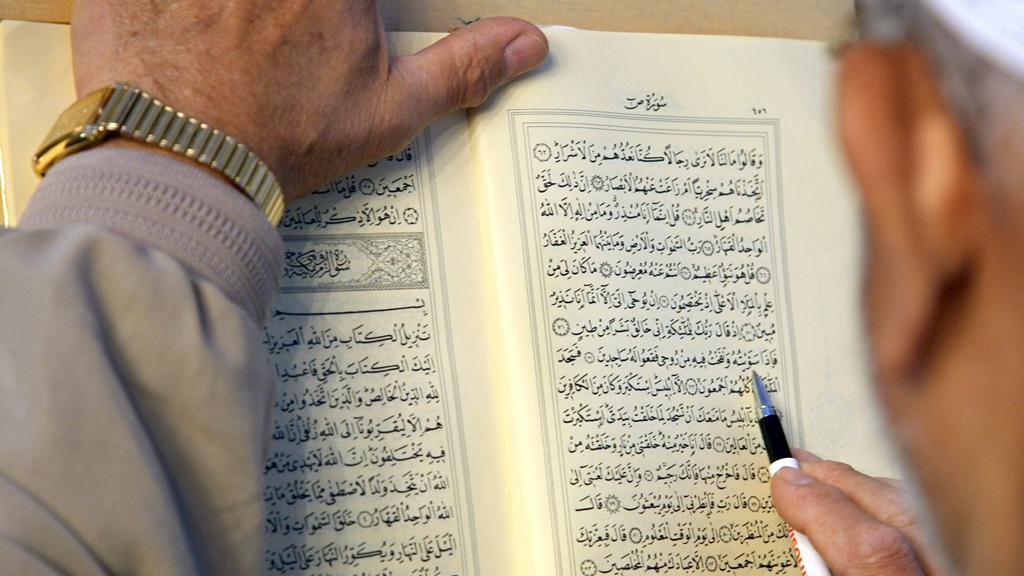 ٤٥٦
سُورَةُ صٓ
وَقَالُوا مَا لَنَا لَا نَرٰى رِجَالًا كُنَّا نَعُدُّهُمْ مِنَ الْاَشْرَارِ ﴿٦٢﴾
اَتَّخَذْنَاهُمْ سِخْرِيًّا اَمْ زَاغَتْ عَنْهُمُ الْاَبْصَارُ ﴿٦٣﴾ اِنَّ ذٰلِكَ لَحَقٌّ
تَخَاصُمُ اَهْلِ النَّارِ ﴿٦٤﴾ قُلْ اِنَّمَا اَنَا مُنْذِرٌ وَمَا مِنْ اِلٰهٍ اِلَّا اللّٰهُ
الْوَاحِدُ الْقَهَّارُ ﴿٦٥﴾ رَبُّ السَّمٰوَاتِ وَالْاَرْضِ وَمَا بَيْنَهُمَا الْعَزِيزُ الْغَفَّارُ
﴿٦٦﴾ قُلْ هُوَ نَبَؤٌا عَظِيمٌ ﴿٦٧﴾ اَنْتُمْ عَنْهُ مُعْرِضُونَ ﴿٦٨﴾ مَا كَانَ لِيَ مِنْ
عِلْمٍ بِالْمَلَاِ الْاَعْلٰى اِذْ يَخْتَصِمُونَ ﴿٦٩﴾ اِنْ يُوحٰى اِلَيَّ اِلَّا اَنَّمَا اَنَا نَذِيرٌ
مُبِينٌ ﴿٧٠﴾ اِذْ قَالَ رَبُّكَ لِلْمَلٰئِكَةِ اِنِّي خَالِقٌ بَشَرًا مِنْ طِينٍ ﴿٧١﴾
فَاِذَا سَوَّيْتُهُ وَنَفَخْتُ فِيهِ مِنْ رُوحِي فَقَعُوا لَهُ سَاجِدِينَ ﴿٧٢﴾ فَسَجَدَ
كُلُّهُمْ اَجْمَعُونَ ﴿٧٣﴾ اِلَّا اِبْلِيسَ اسْتَكْبَرَ وَكَانَ مِنَ الْكَافِرِينَ
اِبْلِيسُ مَا مَنَعَكَ اَنْ تَسْجُدَ لِمَا خَلَقْتُ بِيَدَيَّ اَسْتَكْبَرْتَ
مِنَ الْعَالِينَ ﴿٧٥﴾ قَالَ اَنَا خَيْرٌ مِنْهُ خَلَقْتَنِي مِنْ نَارٍ وَخَلَقْتَهُ مِنْ
قَالَ فَاخْرُجْ مِنْهَا فَاِنَّكَ رَجِيمٌ ﴿٧٧﴾ وَاِنَّ عَلَيْكَ لَعْنَتِي اِلٰى
قَالَ رَبِّ فَاَنْظِرْنِي اِلٰى يَوْمِ يُبْعَثُونَ ﴿٧٩﴾ قَالَ
مِنَ الْمُنْظَرِينَ ﴿٨٠﴾ اِلٰى يَوْمِ الْوَقْتِ الْمَعْلُومِ ﴿٨١﴾ قَالَ فَبِعِزَّتِكَ
لَاُغْوِيَنَّهُمْ اَجْمَعِينَ ﴿٨٢﴾ اِلَّا عِبَادَكَ مِنْهُمُ الْمُخْلَصِينَ
قَالَ
اَجْمَعِينَ ﴿٨٥﴾ قُلْ مَا
اِنْ هُوَ اِلَّا ذِكْرٌ لِلْعَالَمِينَ
سُورَةُ الزُّمَرِ مَكِّيَّةٌ
تَنْزِيلُ الْكِتَابِ مِنَ اللّٰهِ الْعَزِيزِ
اِلَيْكَ الْكِتَابَ بِالْحَقِّ فَاعْبُدِ
لِلّٰهِ الدِّينُ الْخَالِصُ وَالَّذِينَ اتَّخَذُوا مِنْ
هُمْ اِلَّا لِيُقَرِّبُونَا اِلَى اللّٰهِ زُلْفٰى اِنَّ اللّٰهَ
فِيهِ يَخْتَلِفُونَ اِنَّ اللّٰهَ لَا يَهْدِي مَنْ هُوَ
اللّٰهُ اَنْ يَتَّخِذَ وَلَدًا لَاصْطَفٰى مِمَّا يَخْلُقُ مَا
اللّٰهُ الْوَاحِدُ الْقَهَّارُ ﴿٤﴾ خَلَقَ السَّمٰوَاتِ وَالْاَ
الَّيْلَ عَلَى النَّهَارِ وَيُكَوِّرُ النَّهَارَ عَلَى الَّيْلِ